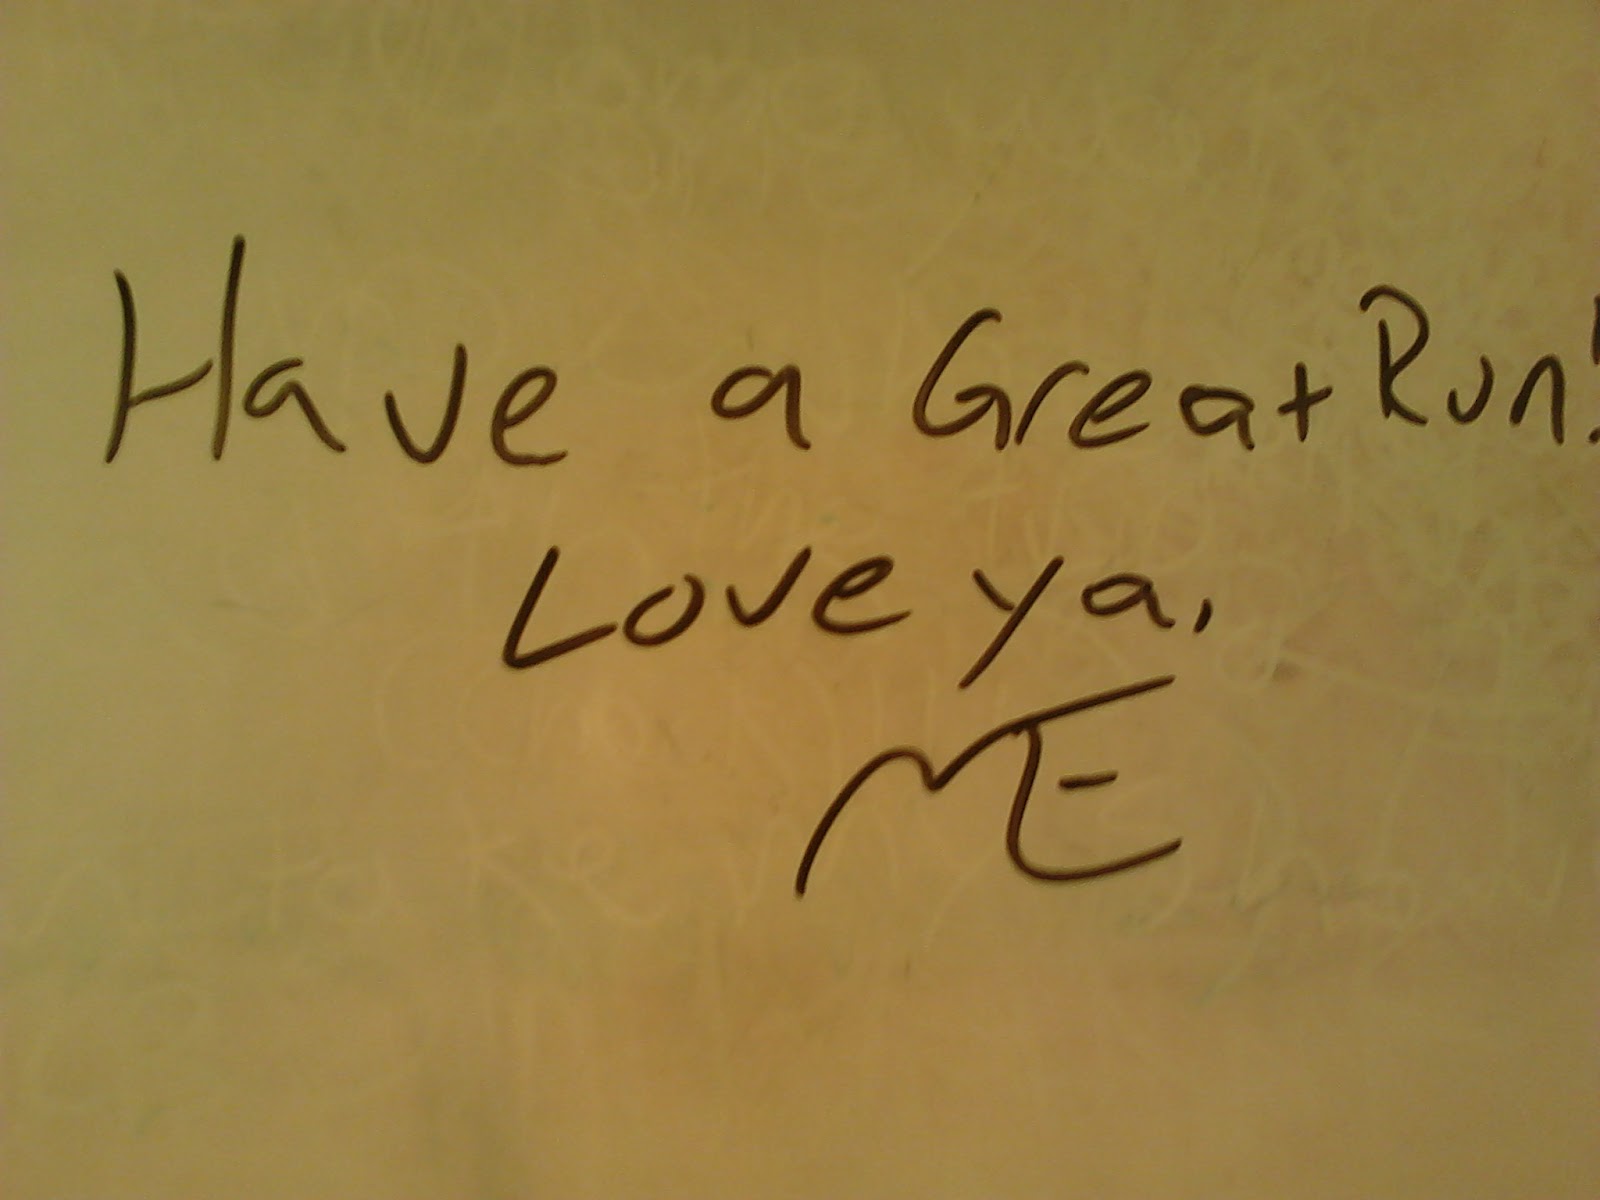 Have a Great Run!
Love ya,
ME